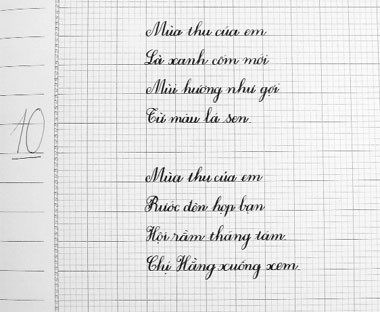 10
Mùa thu của em
Là xanh cốm mới
Mùi hương như gợi
Từ màu lá sen.
Mùa thu của em
Rước đèn họp bạn
Hội rằm tháng tám.
Chị Hằng xuống xem.